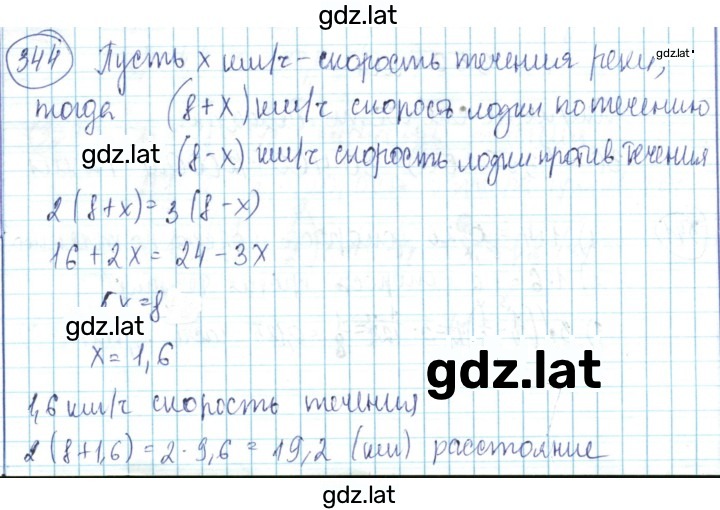 gdz.lat
344 Пусть x км/ч – скорость течения реки,
gdz.lat
тогда (8+x) км/ч скорость лодки по течению
gdz.lat (8-x) км/ч скорость лодки против течения
2(8+x)=3(8-x)
16+2x=24-3x
5x=8
gdz.lat
x=1,6
gdz.lat
1,6 км/ч скорость течения
2(8+1,6)=2·9,6=19,2 (км) расстояние
gdz.lat